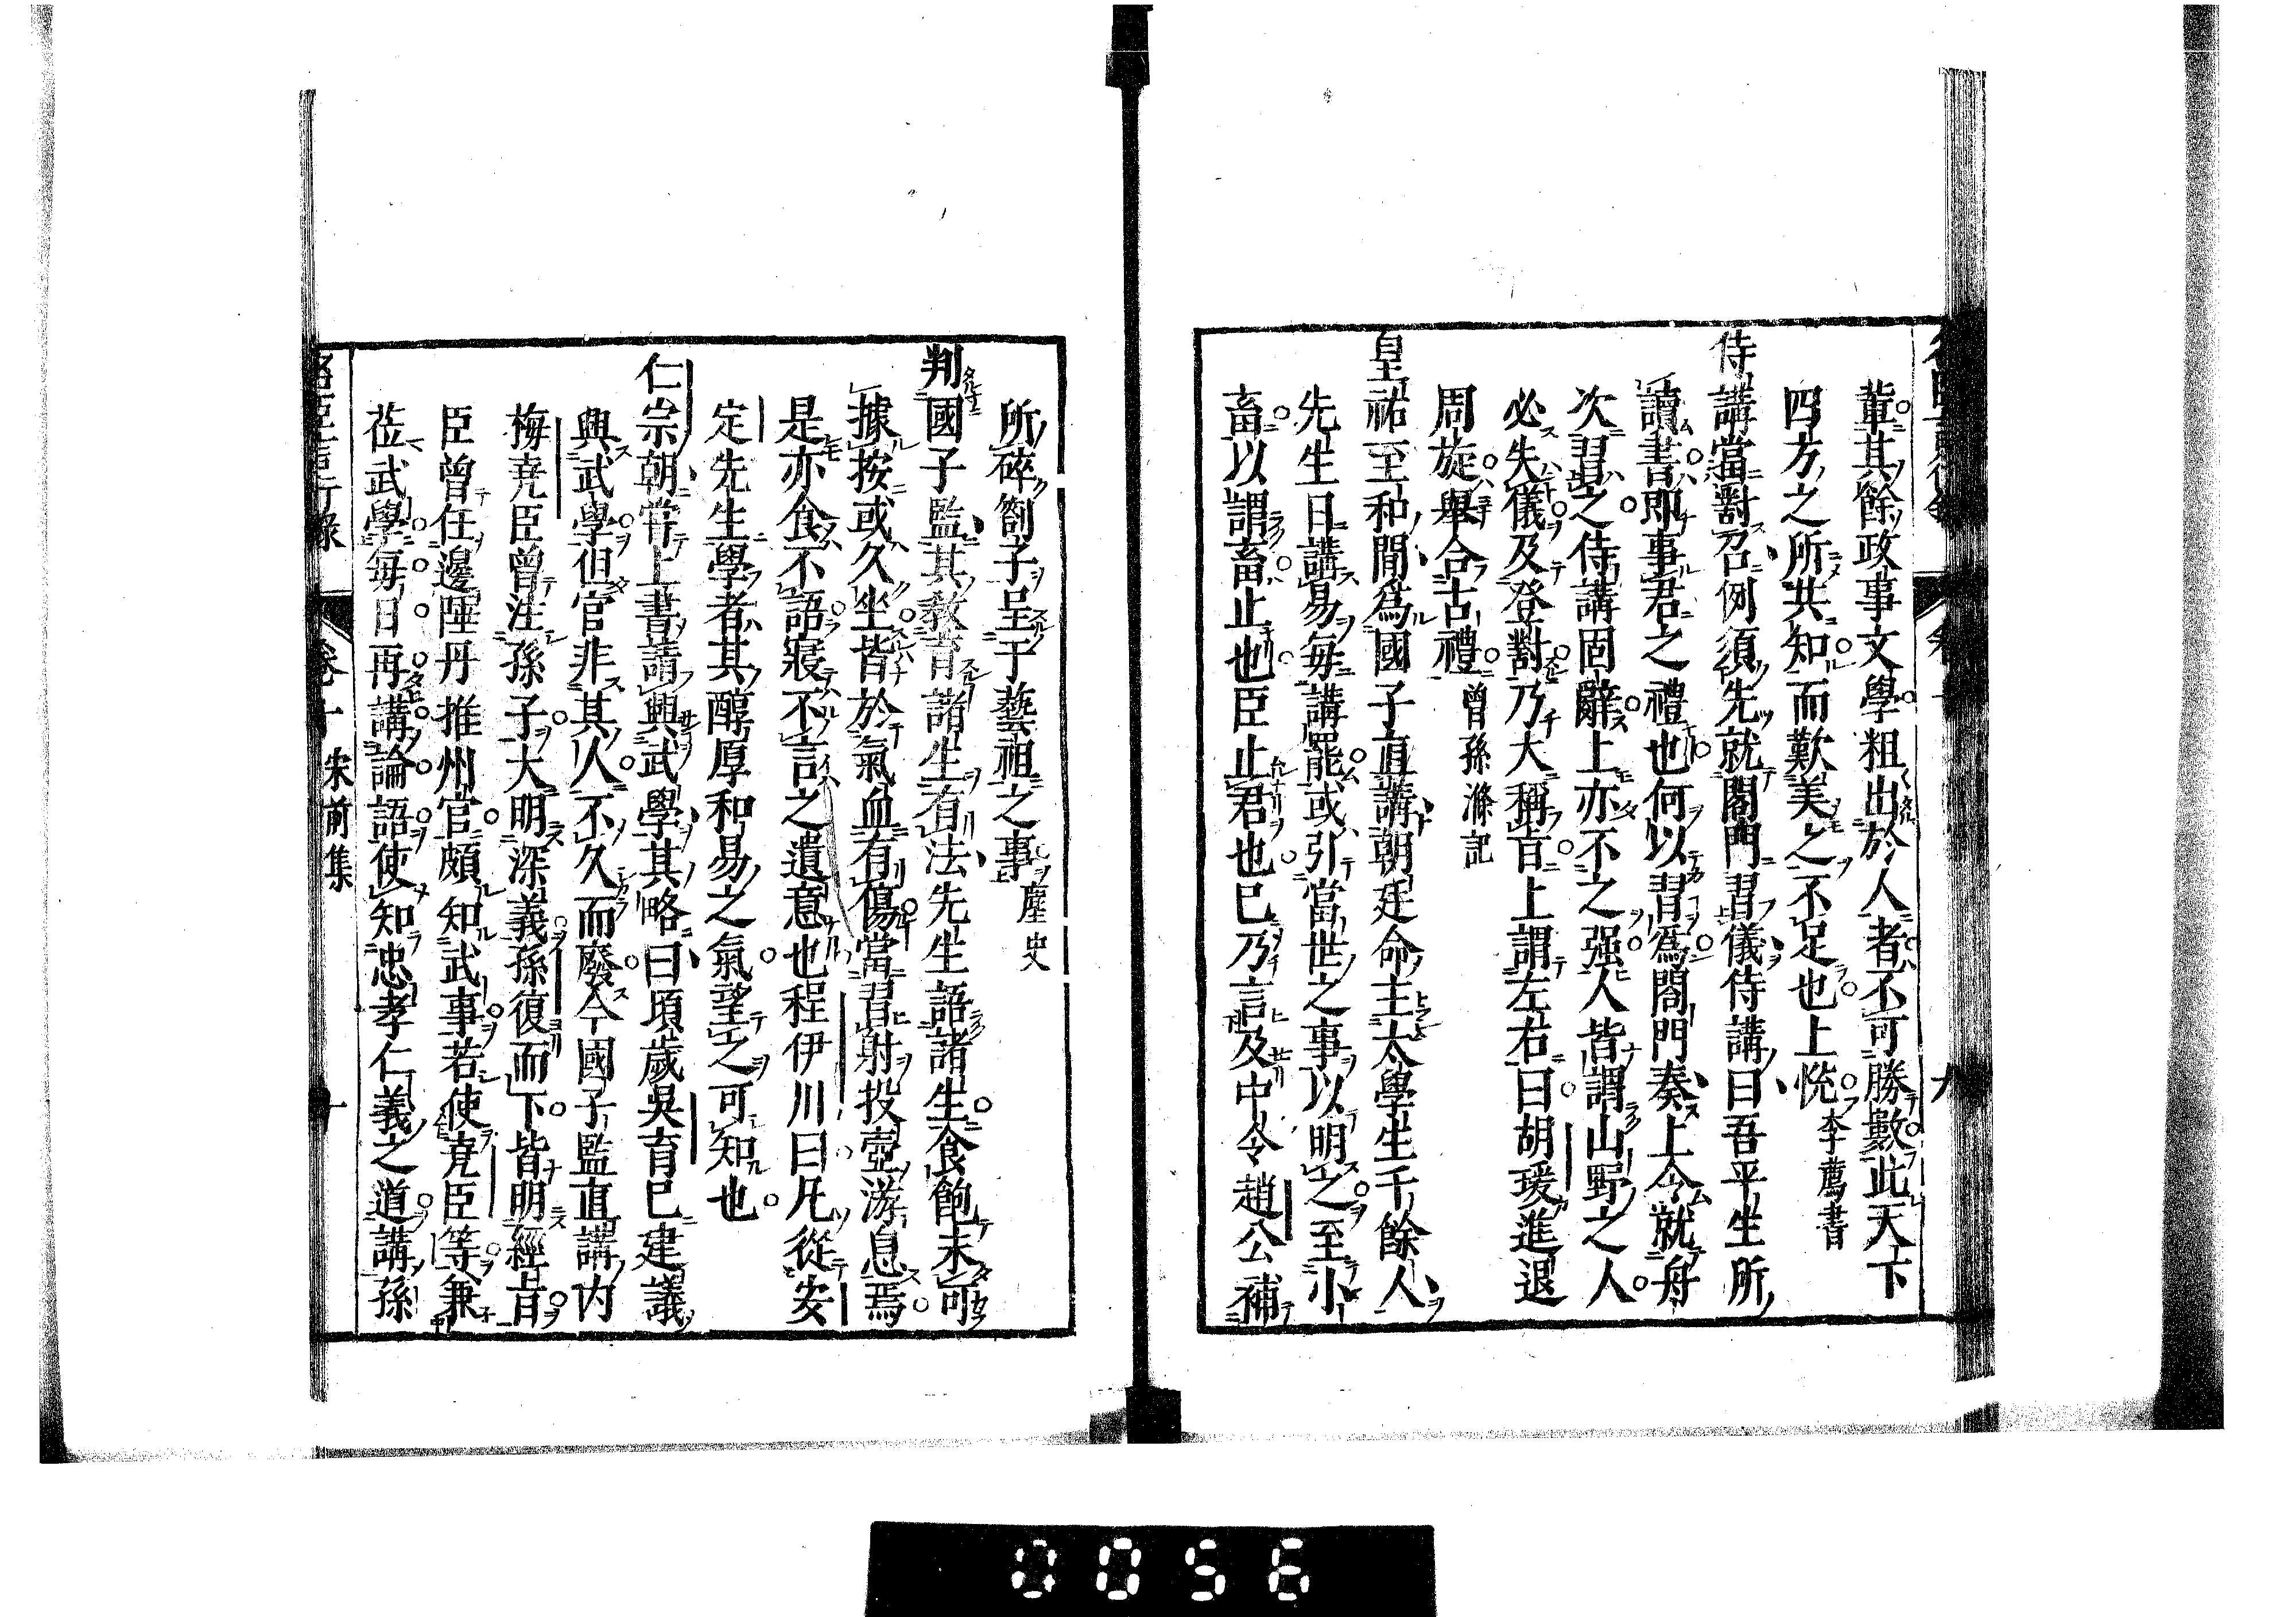 輩其餘政事文學粗出於人者不可勝數此天下
四方之所共知而歎美之不足也上悅李廌書
侍講當對召例須先就閤門習儀侍講曰吾平生所
讀書即事君之禮也何以習爲閤門奏上令就舟
次習之侍講固辭上亦不之强人皆謂山野之人
必失儀及登對乃大稱旨上謂左右曰胡瑗進退
周旋舉合古禮曾孫滌記
皇祐至和間爲國子直講朝廷命主太學生千餘人
先生日講易每講罷或引當世之事以明之至小
畜以謂畜止也臣止君也已乃言及中令趙公補
所碎劄子呈于藝祖之事麈史
判國子監其教育諸生有法先生語諸生食飽未可
據按或久坐皆於氣血有傷當習射投壺游息焉
是亦食不語寢不言之遺意也程伊川曰凡從安
定先生學者其醇厚和易之氣望之可知也
仁宗朝嘗上書請興武學其略曰頃歲吳育已建議
興武學但官非其人不久而廢今國子監直講內
梅堯臣曾注孫子大明深義孫復而下皆明經旨
臣曾任邊陲丹推州官頗知武事若使堯臣等兼
莅武學每日再講論語使知忠孝仁義之道講孫
名臣言行錄 卷十 宋前集 十
0056